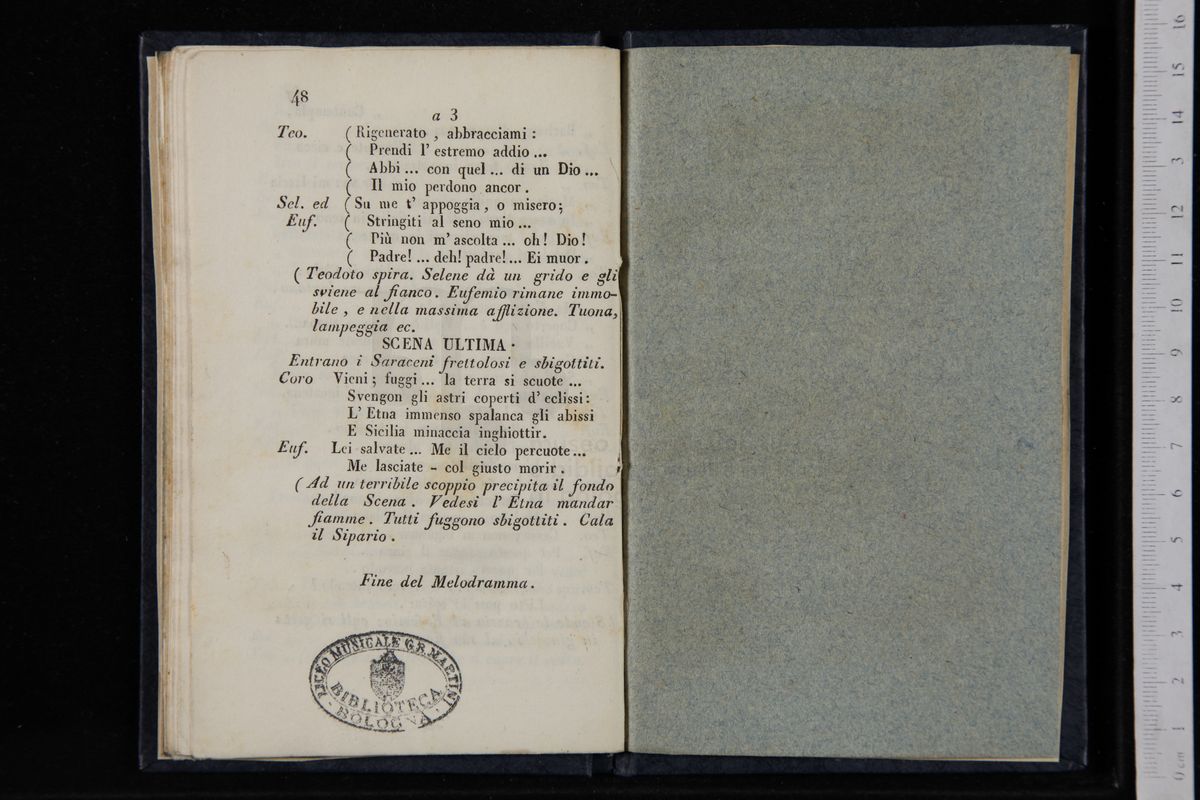 48
a 3
Teo. ( Rigenerato , abbracciami :
( Prendi l' estremo addio ...
( Abbi ... con quel ... di un Dio ...
( Il mio perdono ancor .
Sel. ed ( Su me t' appoggia , o misero ;
Euf. ( Stringiti al seno mio ...
( Più non m' ascolta ... oh ! Dio !
( Padre! ... deh! padre! ... Ei muor .
( Teodoto spira. Selene dà un grido e gli
sviene al fianco . Eufemio rimane immo-
bile , e nella massima afflizione. Tuona,
lampeggia ec.
SCENA ULTIMA .
Entrano i Saraceni frettolosi e sbigottiti.
Coro Vieni ; fuggi ... la terra si scuote ...
Svengon gli astri coperti d' eclissi :
L' Etna immenso spalanca gli abissi
E Sicilia minaccia inghiottir.
Euf. Lei salvate ... Me il cielo percuote ...
Me lasciate - col giusto morir .
( Ad un terribile scoppio precipita il fondo
della Scena . Vedesi l' Etna mandar
fiamme . Tutti fuggono sbigottiti . Cala
il Sipario .
Fine del Melodramma .
LICEO MUSICALE G.B. MARTINI
BIBLIOTECA
BOLOGNA
16
15
14
13
12
11
10
9
8
7
6
5
4
3
2
1
0 cm